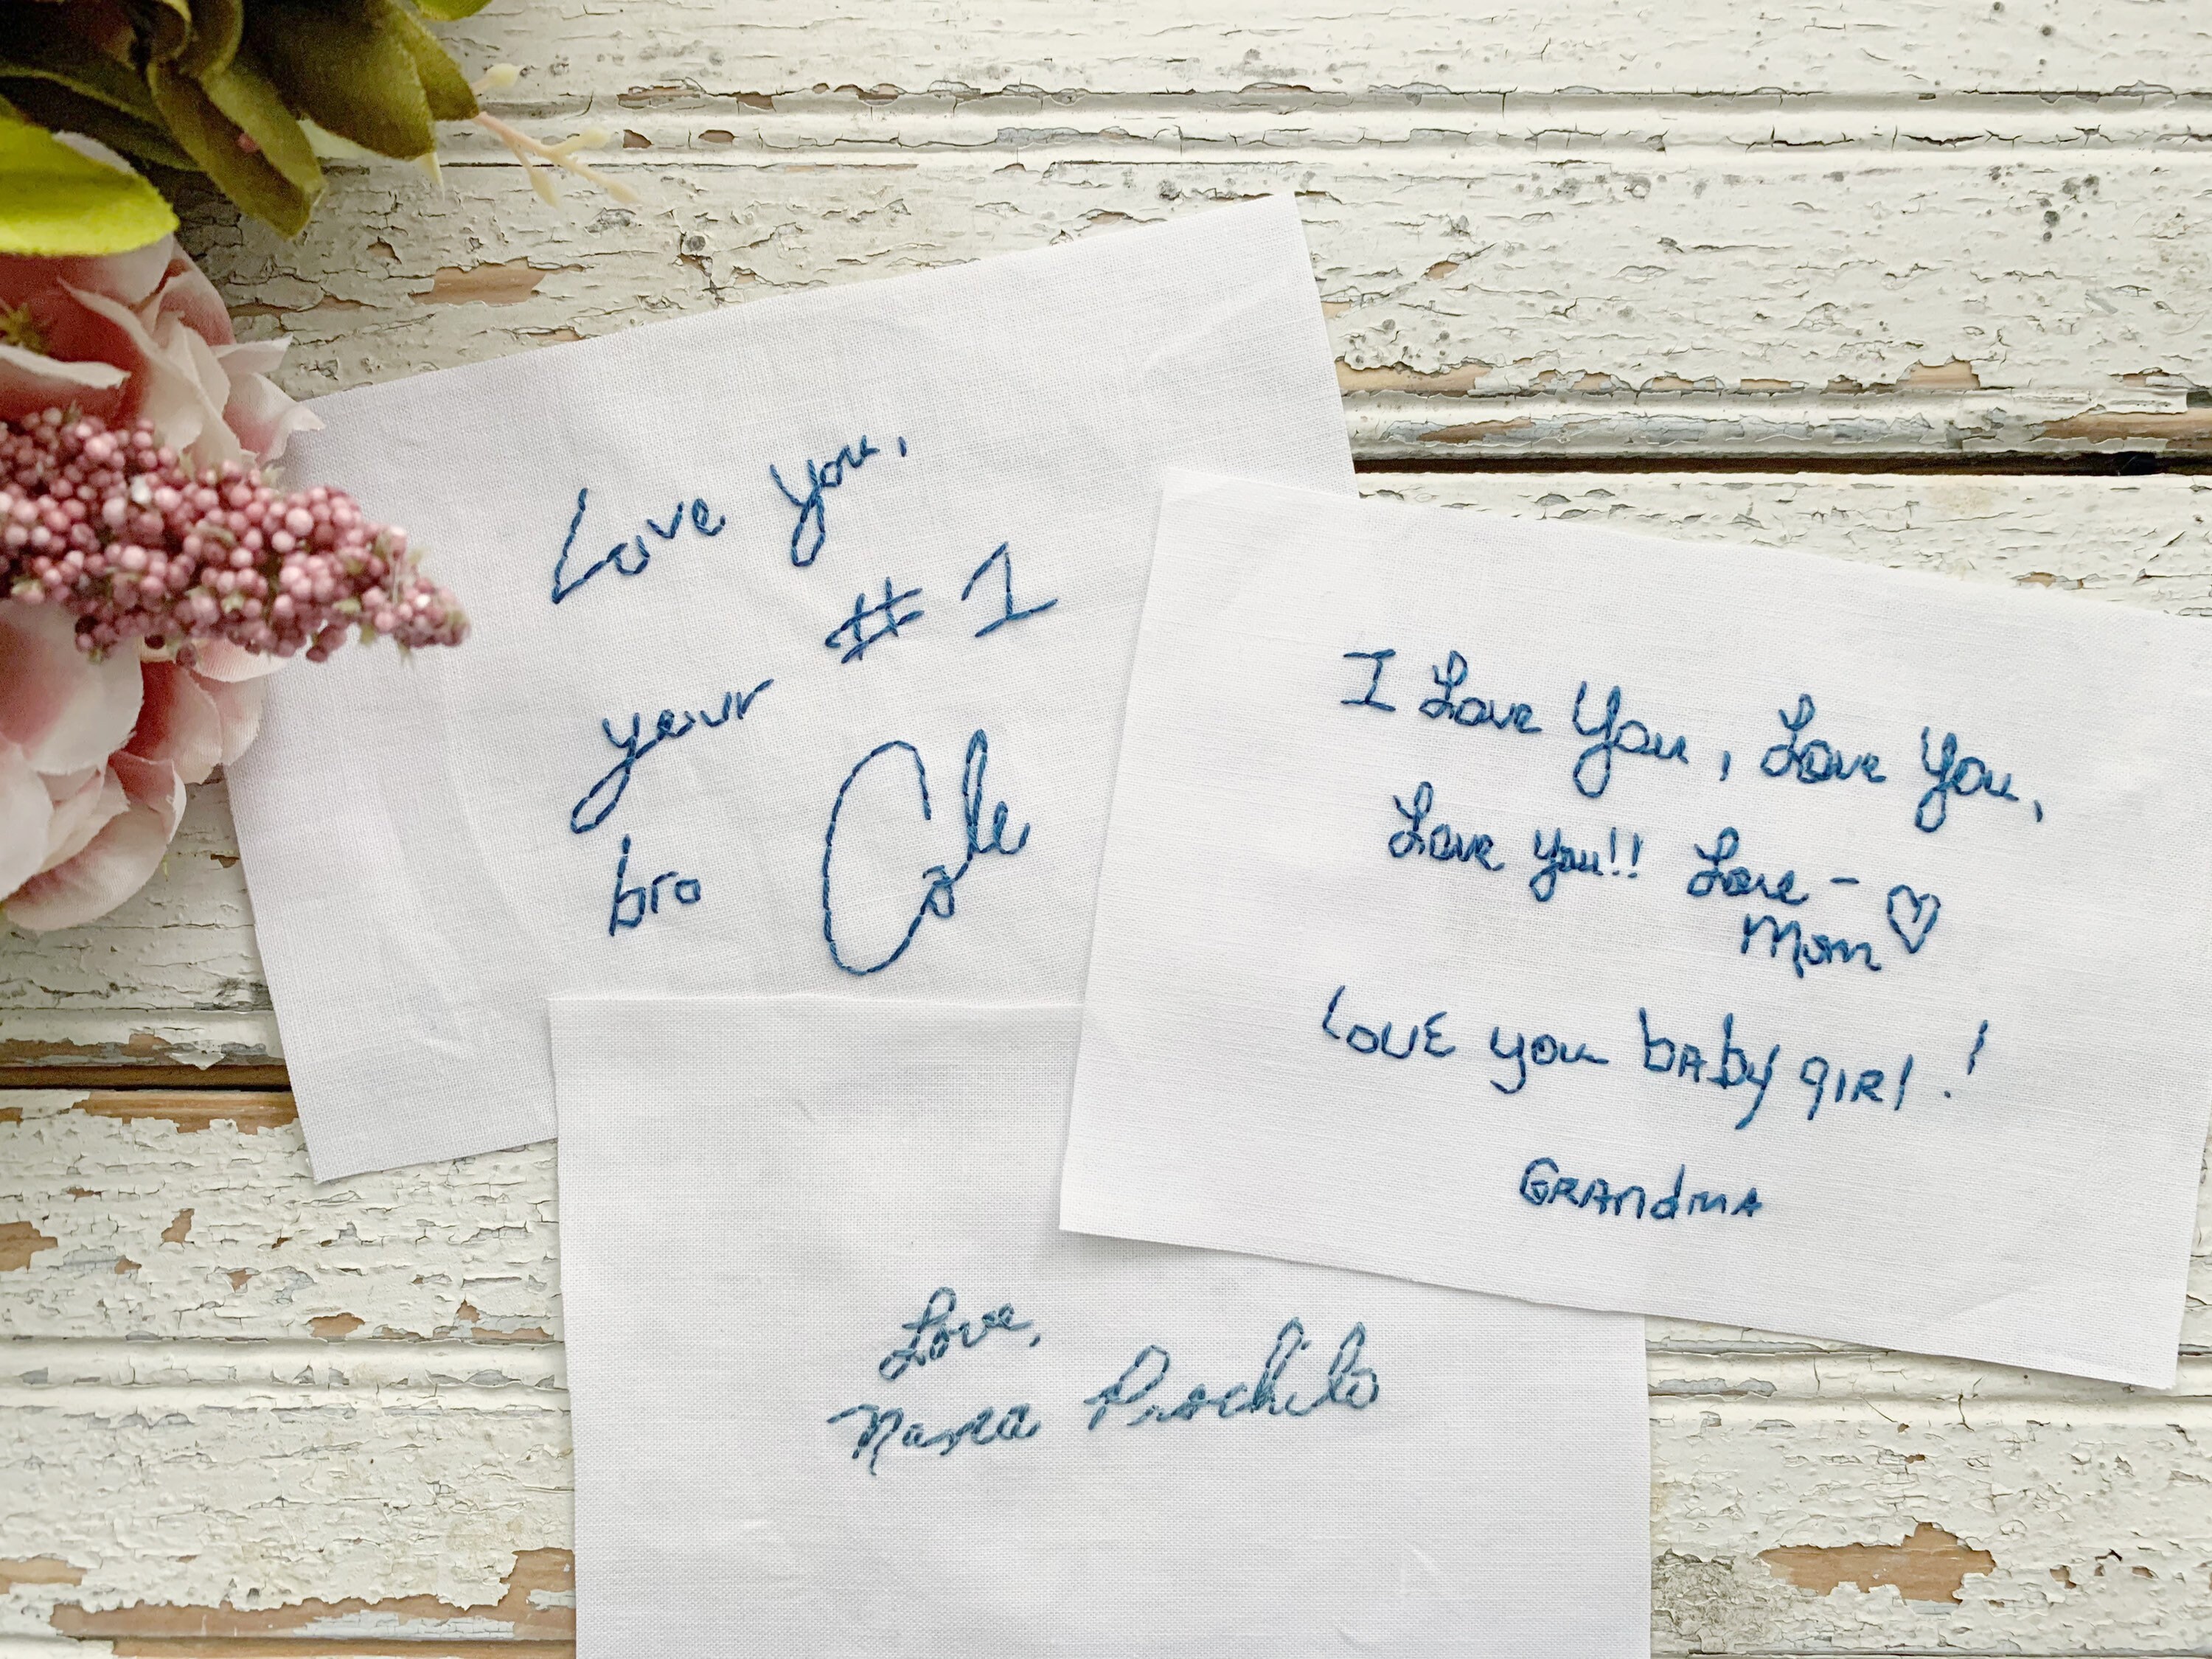 Love you,
your #1
bro Cole
I Love You, Love You,
Love you!! Love -
Mom
LOVE you bAby gIRl!
GRAndmA
Love,
Nana